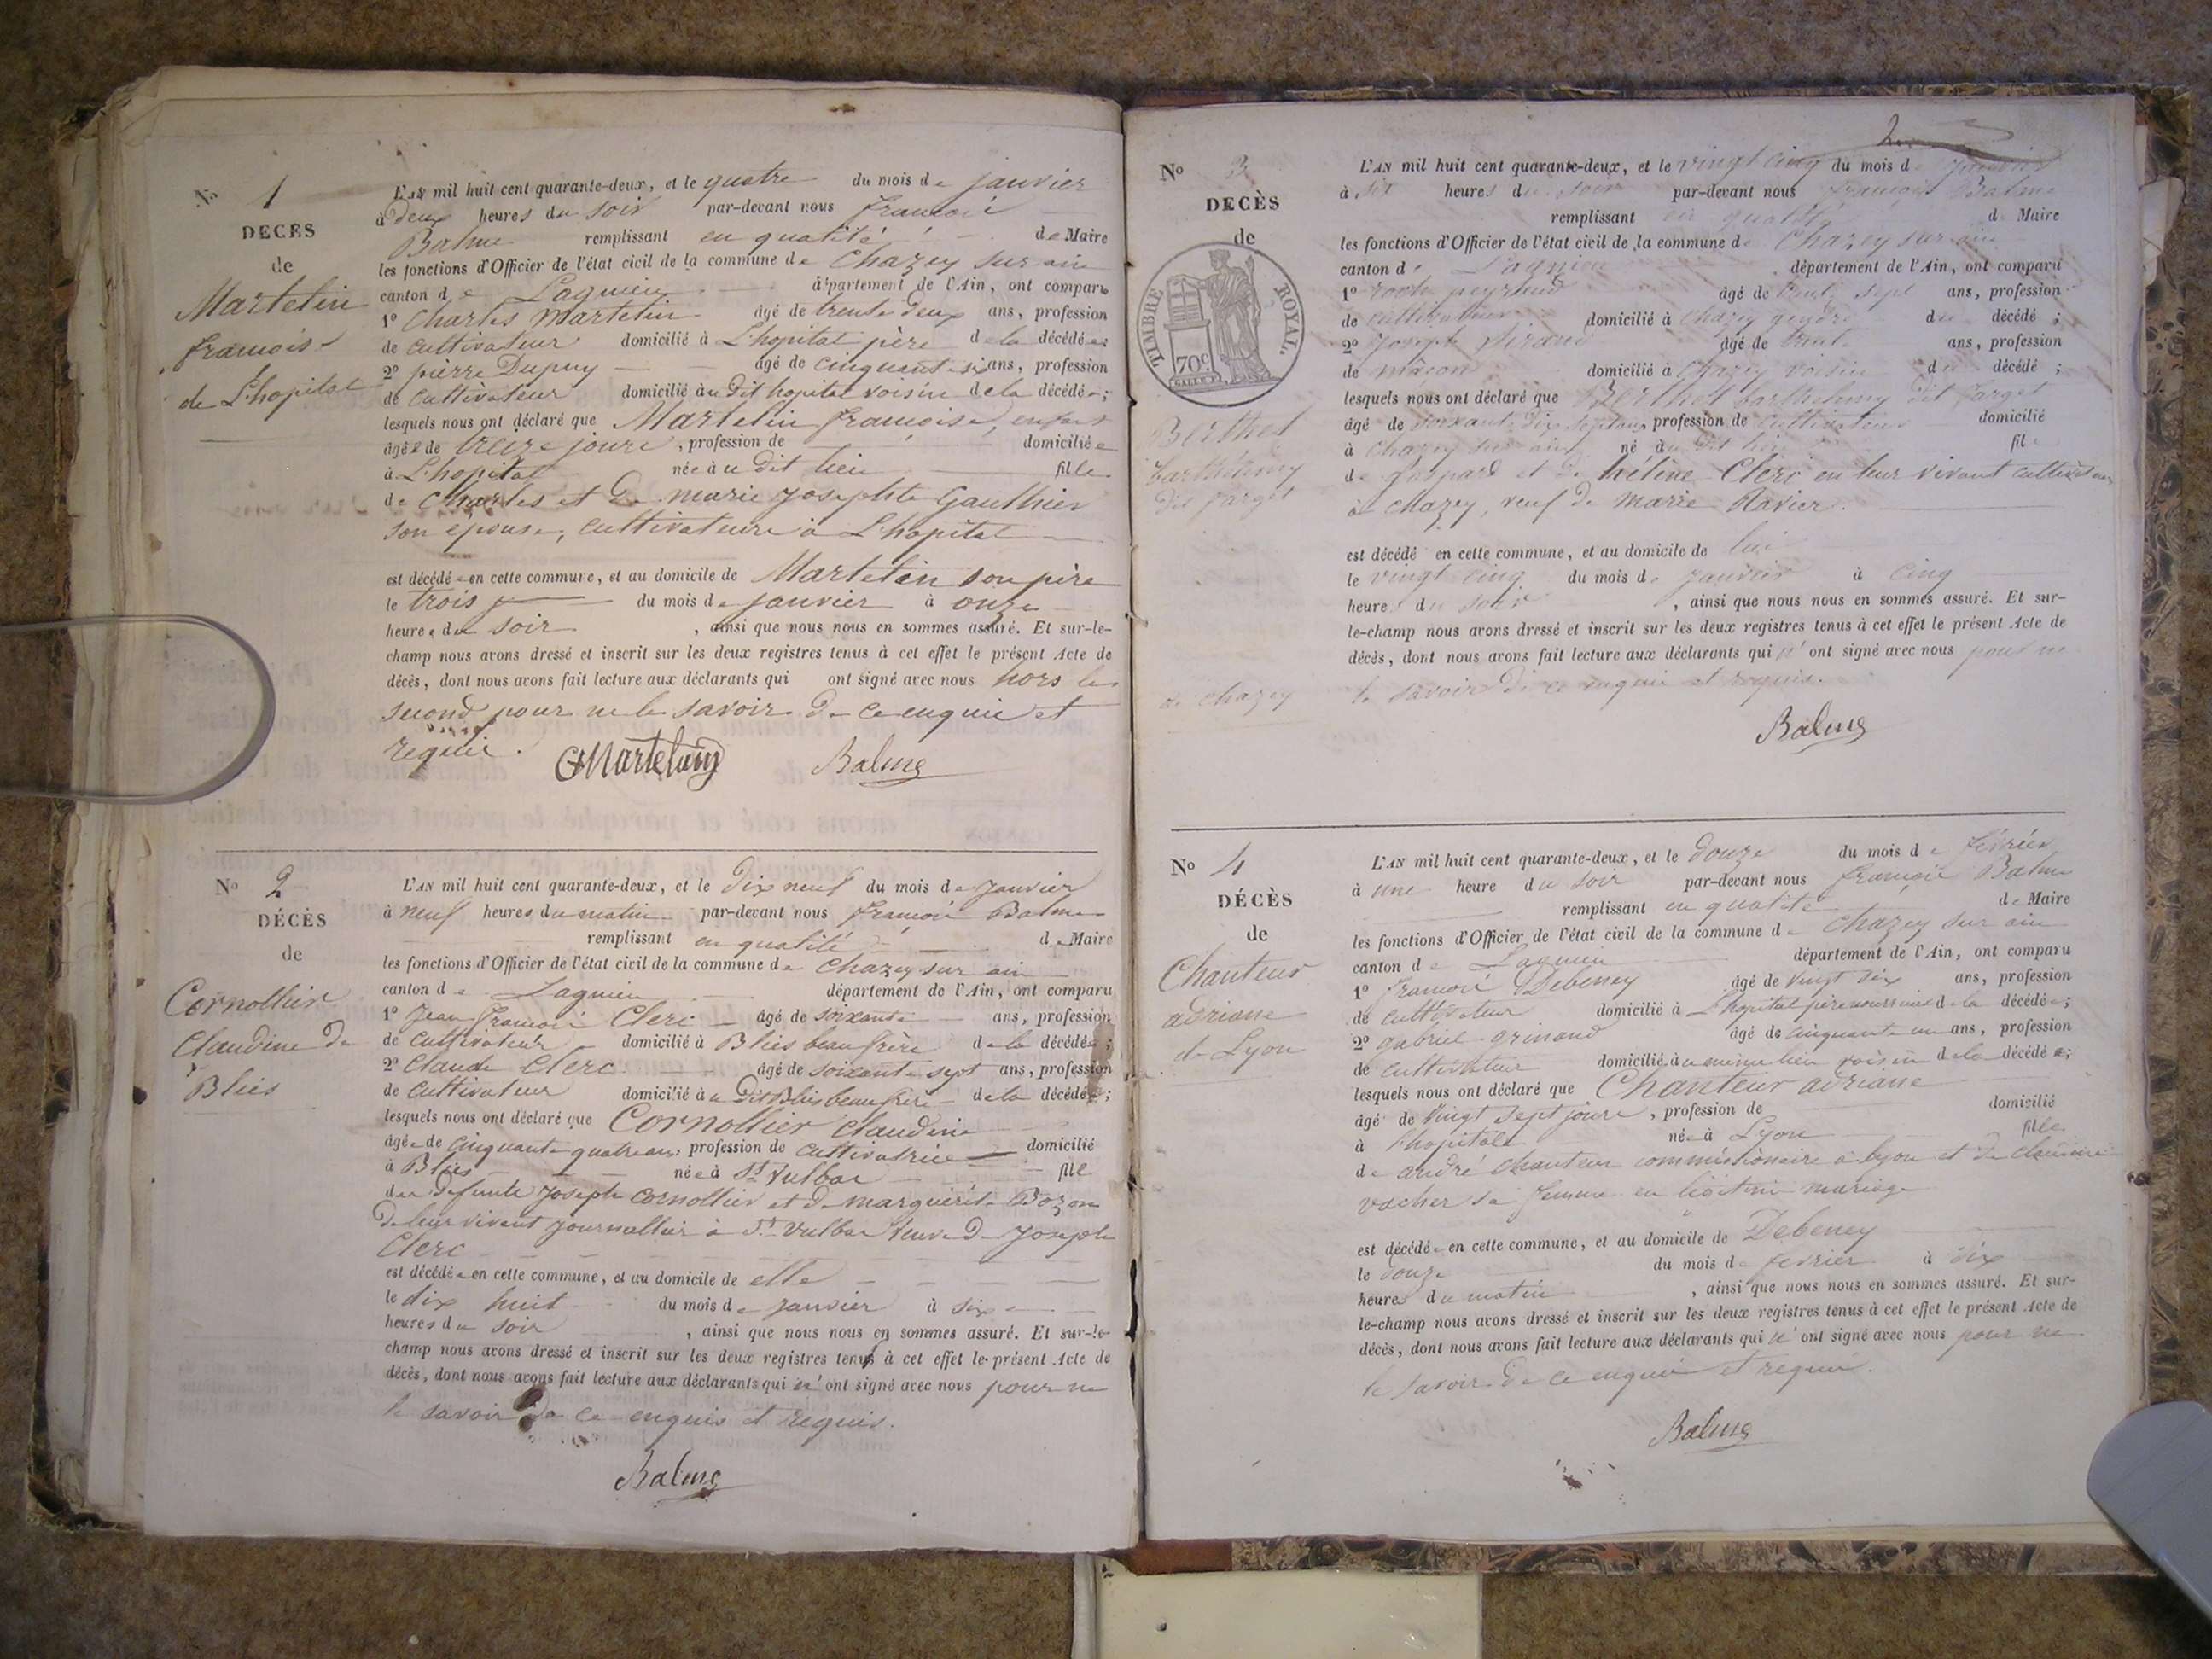 No 1
DECES
de
Martelin
francoise
de L'hopital
L'AN mil huit cent quarante-deux, et le quatre du mois de janvier
à deux heures du soir par-devant nous francois
Balme remplissant en qualité de Maire
les fonctions d'Officier de l'état civil de la commune de Chazey sur ain
canton de Lagnieu département de l'Ain, ont comparu
1º Charles Martelin âgé de trente deux ans, profession
de cultivateur domicilié à L'hopital père de la décédée
2º pierre Dupuy âgé de cinquante six ans, profession
de cultivateur domicilié au dit hopital voisin de la décédée;
lesquels nous ont déclaré que Martelin francoise, enfant
âgée de treize jours, profession de domiciliée
à L'hopital née à u dit lieu fille
de Charles et de marie josephte Gauthier
son epouse, cultivateurs à L'hopital
est décédée en cette commune, et au domicile de Martelin son père
le trois du mois de janvier à onze
heures du soir, ainsi que nous nous en sommes assuré. Et sur-le-
champ nous avons dressé et inscrit sur les deux registres tenus à cet effet le présent Acte de
décès, dont nous avons fait lecture aux déclarants qui ont signé avec nous hors le
second pour ne le savoir de ce enquis et
requis.
CMartelin Balme
No 2
DÉCÈS
de
Cornollier
Claudine de
Blies
L'AN mil huit cent quarante-deux, et le dix neuf du mois de janvier
à neuf heures du matin par-devant nous francois Balme
remplissant en qualité de Maire
les fonctions d'Officier de l'état civil de la commune de Chazey sur ain
canton de Lagnieu département de l'Ain, ont comparu
1º jean francois Clerc âgé de soixante ans, profession
de cultivateur domicilié à Blies beau frère de la décédée;
2º Claude Clerc âgé de soixante sept ans, profession
de cultivateur domicilié au dit Blies beau frère de la décédée;
lesquels nous ont déclaré que Cornollier Claudine
âgée de cinquante quatre ans, profession de cultivatrice domicilié
à Blies née à St Vulbas fille
des defunts joseph Cornollier et de marguerite Bozon
de leur vivant journallier à St Vulbas veuve de joseph
Clerc
est décédée en cette commune, et au domicile de elle
le dix huit du mois de janvier à six
heures du soir, ainsi que nous nous en sommes assuré. Et sur-le-
champ nous avons dressé et inscrit sur les deux registres tenus à cet effet le présent Acte de
décès, dont nous avons fait lecture aux déclarants qui n'ont signé avec nous pour ne
le savoir de ce enquis et requis.
Balme
No 3
DECÈS
de
TIMBRE ROYAL.
70c.
Berthet
barthélemy
dit farget
de chazey
L'AN mil huit cent quarante-deux, et le vingt cinq du mois de janvier
à sit heures du soir par-devant nous francois Balme
remplissant en qualité de Maire
les fonctions d'Officier de l'état civil de la commune de Chazey sur ain
canton de Lagnieu département de l'Ain, ont comparu
1º peyraud âgé de trente sept ans, profession
de cultivateur domicilié à chazey gendre du décédé;
2º joseph Sirand âgé de trente ans, profession
de maçon domicilié à Chazey voisin du décédé;
lesquels nous ont déclaré que Berthet barthelemy dit farget
âgé de soixante dix sept ans, profession de cultivateur domicilié
à Chazey sur ain né au dit lieu fils
de gaspard et de héline Clerc en leur vivant cultivateur
à Chazey, veuf de marie Ravier.
est décédé en cette commune, et au domicile de lui
le vingt cinq du mois de janvier à cinq
heures du soir, ainsi que nous nous en sommes assuré. Et sur-
le-champ nous avons dressé et inscrit sur les deux registres tenus à cet effet le présent Acte de
décès, dont nous avons fait lecture aux déclarants qui n'ont signé avec nous pour ne
le savoir de ce enquis et requis.
Balme
No 4
DÉCÈS
de
Chanteur
adriane
de Lyon
L'AN mil huit cent quarante-deux, et le douze du mois de février
à une heure du soir par-devant nous francois Balme
remplissant en qualité de Maire
les fonctions d'Officier de l'état civil de la commune de Chazey sur ain
canton de Lagnieu département de l'Ain, ont comparu
1º francois Debeney âgé de vingt six ans, profession
de cultivateur domicilié à L'hopital père nourricier de la décédée;
2º gabriel grinand âgé de cinquante un ans, profession
de cultivateur domicilié au même lieu voisin de la décédée;
lesquels nous ont déclaré que Chanteur adriane
âgé de vingt sept jours, profession de domicilié
à l'hopital née à Lyon fille
de andré Chanteur commissionaire à lyon et de
vacher sa femme en légitime mariage
est décédée en cette commune, et au domicile de Debeney
le douze du mois de fevrier à dix
heures du matin, ainsi que nous nous en sommes assuré. Et sur-
le-champ nous avons dressé et inscrit sur les deux registres tenus à cet effet le présent Acte de
décès, dont nous avons fait lecture aux déclarants qui n'ont signé avec nous pour ne
le savoir de ce enquis et requis.
Balme